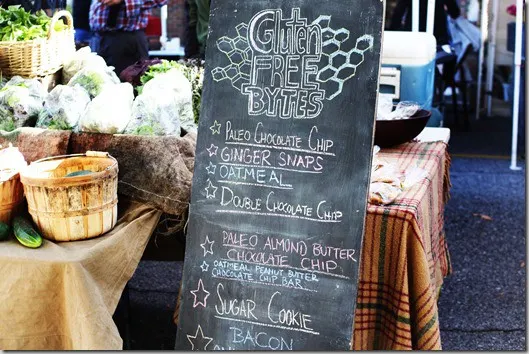 Gluten
FREE
BYTES
PALEO CHOCOLATE CHIP
GINGER SNAPS
OATMEAL
DOUBLE CHOCOLATE CHIP
PALEO ALMOND BUTTER
CHOCOLATE CHIP
OATMEAL PEANUT BUTTER
CHOCOLATE CHIP BAR
SUGAR COOKIE
BACON